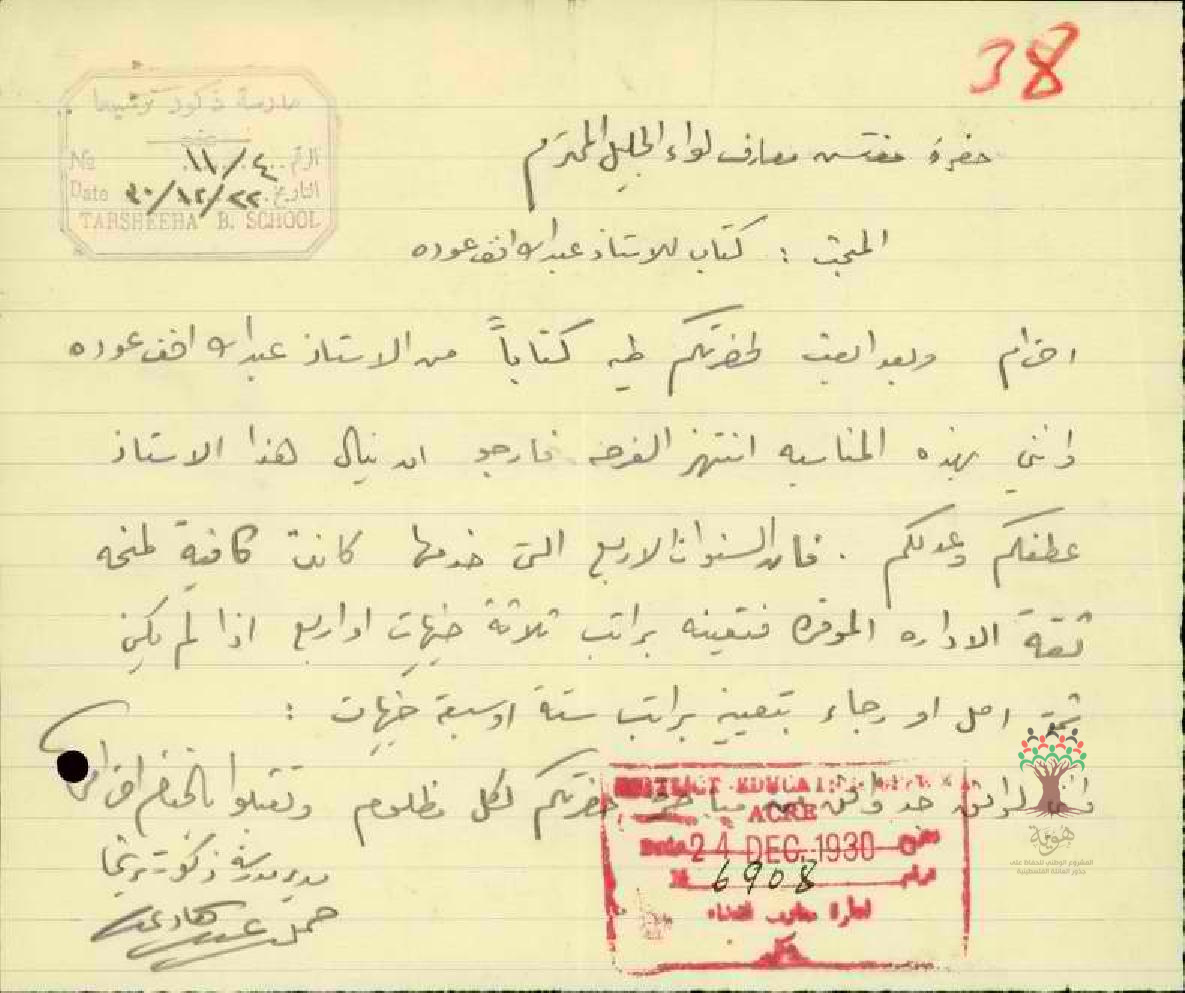 38
مدرسة ذكور ترشيحا
No ١١/٤٠ الرقم
Date ٣٠/١٢/٢٢ التاريخ
TARSHEEHA B. SCHOOL
حضرة مفتش معارف لواء الجليل المحترم
المبحث : كتاب للاستاذ عبدالله افندي عوده
احترام وبعد ابعث لحضرتكم طيه كتاباً من الاستاذ عبدالله افندي عوده
وانني بهذه المناسبه انتهز الفرصه فارجو ان ينال هذا الاستاذ
عطفكم وعدلكم . فان السنوات الاربع التي خدمها كانت كافية لمنحه
ثقة الاداره الموقره فتعينه براتب ثلاثة جنيهات او اربع اذا لم يكن
ثمة امل او رجاء بتعيينه براتب ستة او سبعة جنيهات :
حضرتكم لكل مظلوم وتفضلوا بالختام احترامي
مدير مدرسة ذكور ترشيحا
DISTRICT EDUCATION OFFICE
ACRE
Date 24 DEC. 1930
No 6908
ادارة معارف قضاء
عكا
هوية
المشروع الوطني للحفاظ على
جذور العائلة الفلسطينية